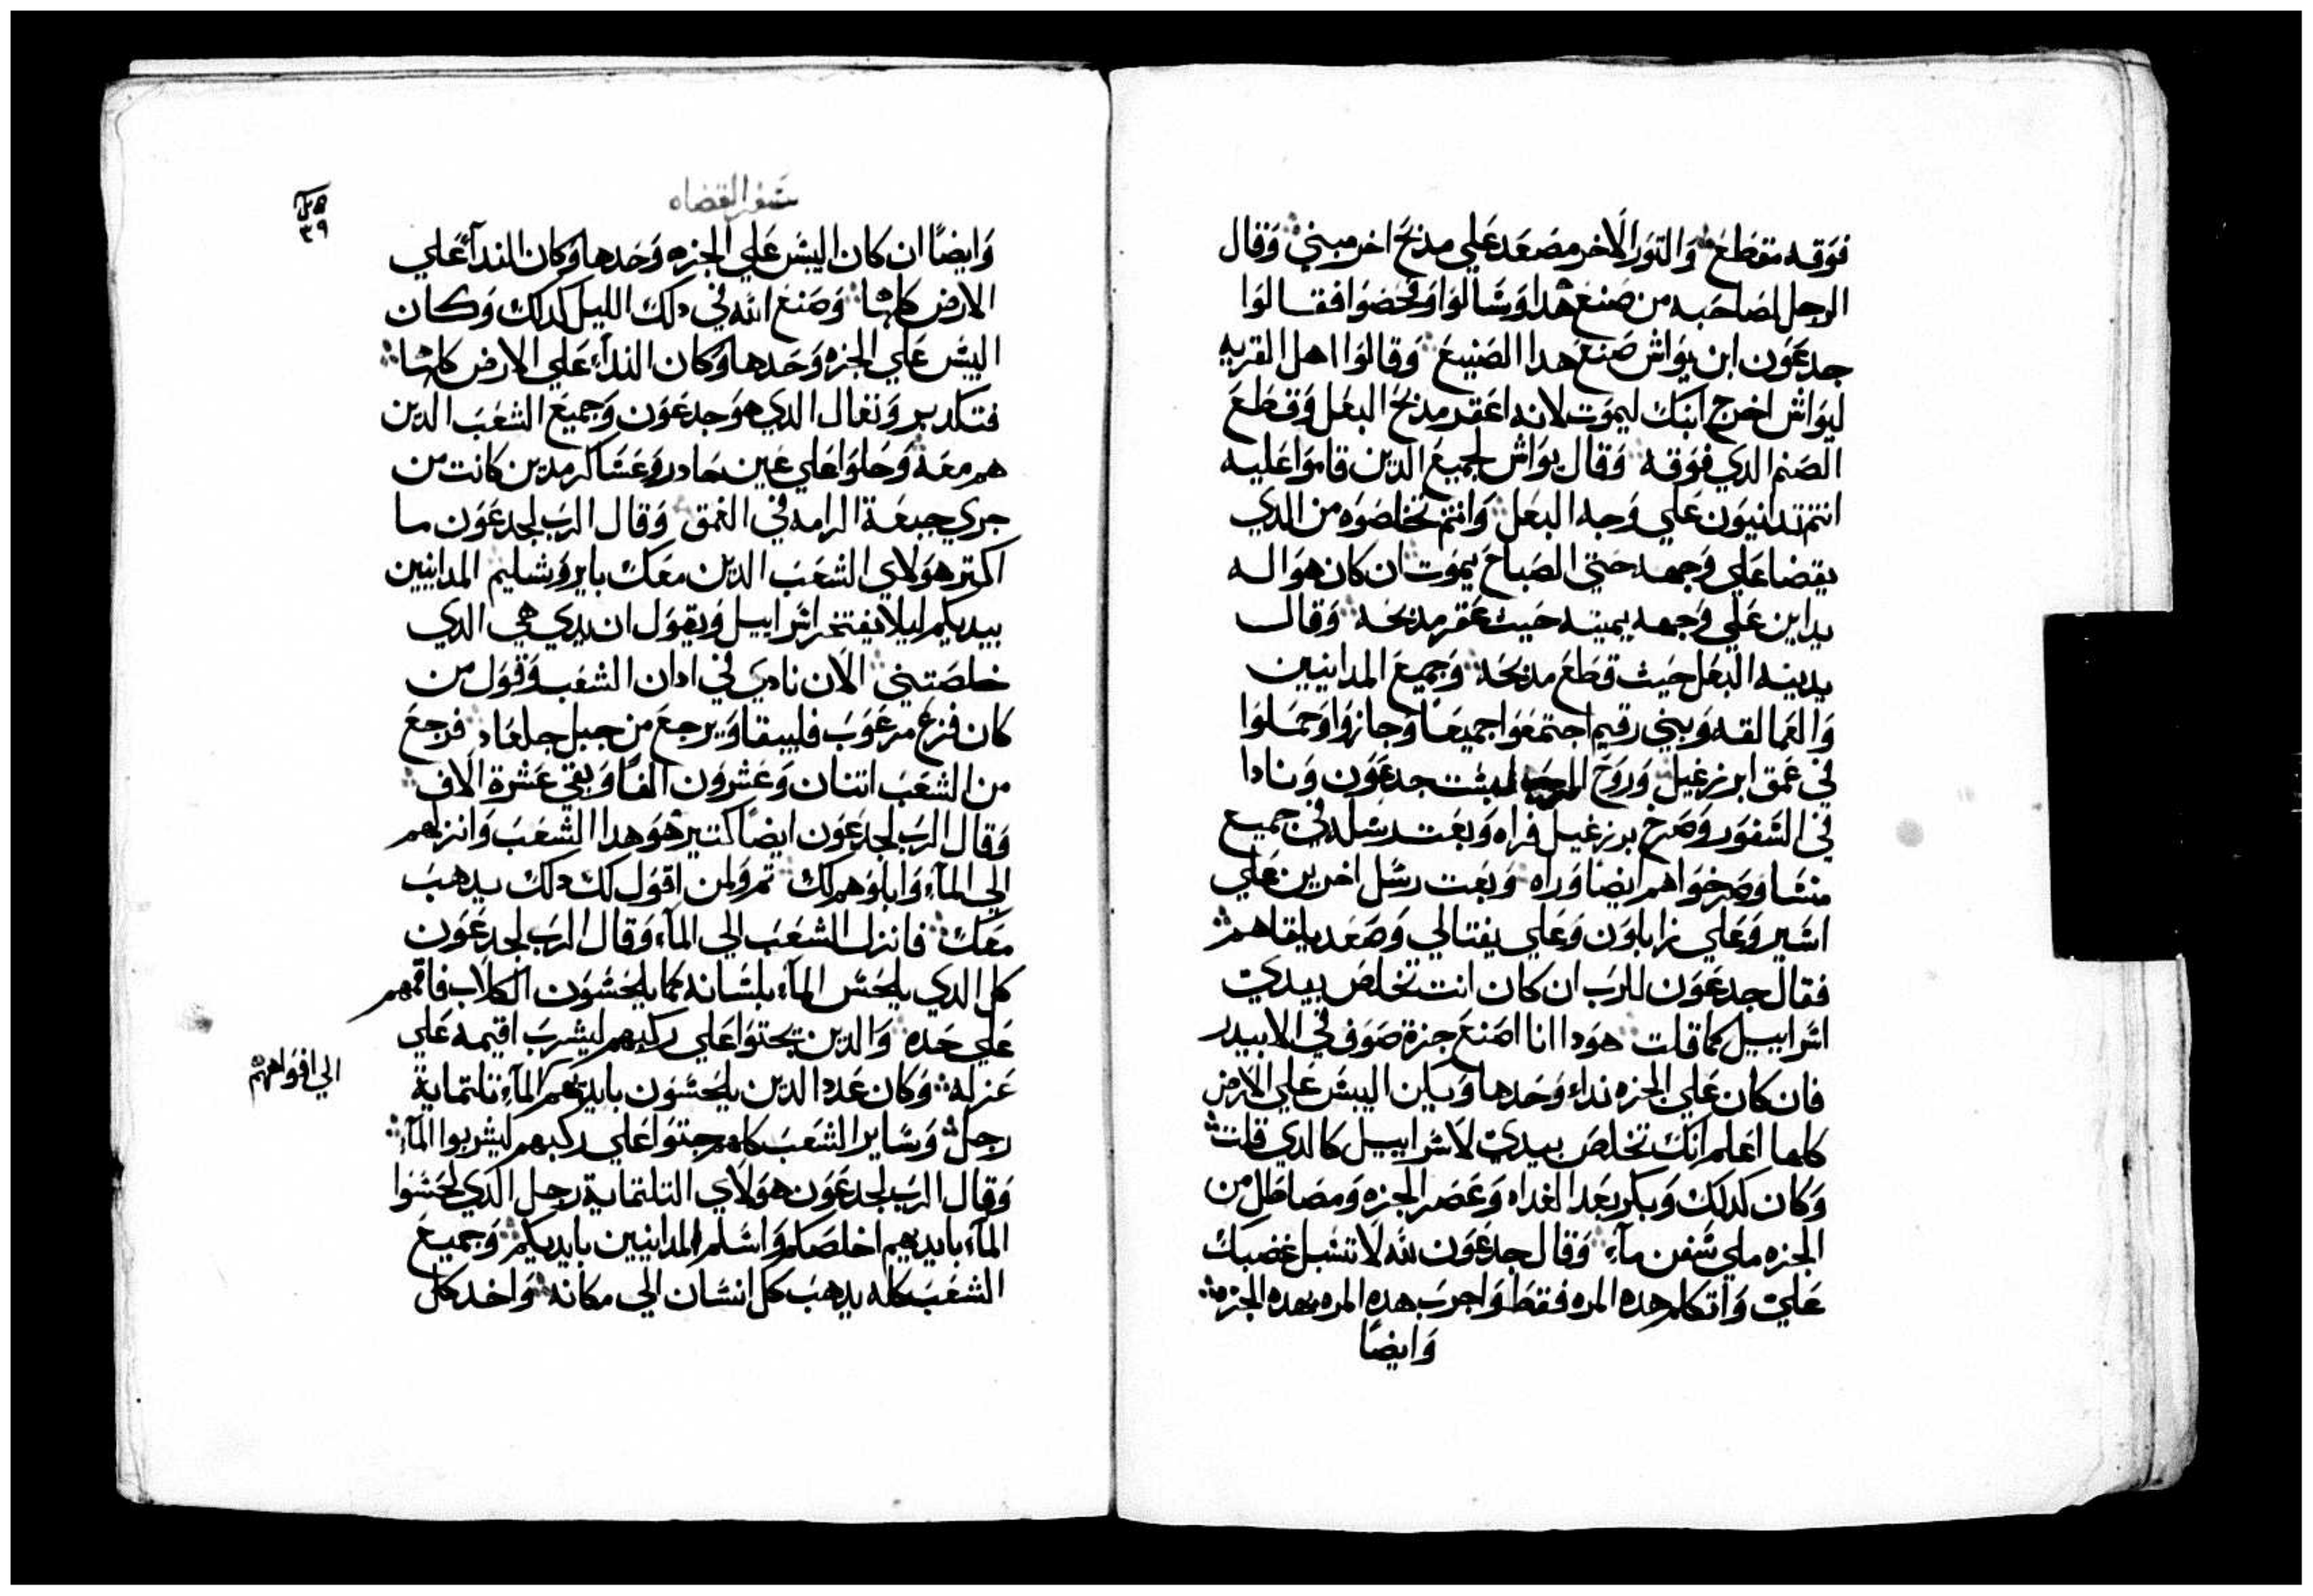 فوقه مقطع والتور الاخر مصعد علي مدبح اخر مبني وقال
الرجل لصاحبه من صنع هدا وسالوا وفحصوا فقالوا
جدعون ابن يواش صنع هدا الصنيع وقالوا اهل القريه
ليواش اخرج ابنك ليموت لانه اعقر مدبح البعل وقطع
الصنم الدي فوقه وقال يواش لجميع الدين قاموا عليه
انتم تدانيون علي وجه البعل وانتم تخلصوه من الدي
يقضا علي وجهه حتي الصباح يموت ان كان هو اله
يداين علي وجهه يميته حيث عقر مدبحه وقال
يدينه البعل حيث قطع مدبحه وجميع المدانيين
والعمالقه وبني رقيم اجتمعوا جميعا وجازوا وحملوا
في عمق ابرزعيل وروح الرب لبست جدعون ونادا
في السفور وصرخ برزعيل فراه وبعت رسله في جميع
منشا وصرخوا هم ايضا وراه وبعت رسل اخرين علي
اشير وعلي زاباون وعلي يفتالي وصعد يلقاهم
فقال جدعون للرب ان كان انت تخلص بيدي
اسراييل كما قلت هودا انا اصنع جزة صوف في الابيدر
فان كان علي الجزه نداء وحدها ويكن اليبس علي الارض
كلها اعلم انك تخلص بيدي لاسراييل كالدي قلت
وكان كدلك وبكر بعد الغداه وعصر الجزه ومصا طل من
الجزه ملي سفن مآء وقال جدعون لله لا تشبل غضبك
علي واتكلم هده المره فقط واجرب هده المره بهده الجزه
وايضًا
سفر القضاه
٣٩
وايضًا ان كان اليبس علي الجزه وحدها وكان الندآء علي
الارض كلها وصنع الله في دلك الليل كدلك وكان
اليبس علي الجزه وحدها وكان الندآء علي الارض كلها
فتكلد برونعال الدي هو جدعون وجميع الشعب الدين
هم معه وحلوا علي عين حادر وعساكر مدين كانت من
جري جبعة الرامه في الغمق وقال الرب لجدعون ما
اكتر هولاي الشعب الدين معك بايروشليم المدانيين
بيديكم ليلا يفتخر اسراييل ويقول ان يدي هي الدي
خلصتني الان نادي في ادان الشعب وقول من
كان فزع مرعوب فليبقا ويرجع من جبل جلعاد فرجع
من الشعب اتنان وعشرون الفًا وبقي عشرة الاف
وقال الرب لجدعون ايضًا كتير هو هدا الشعب وانزلهم
الي المآء وابلوهم لك تم ولمن اقول لك دلك يدهب
معك فانزل الشعب الي المآء وقال الرب لجدعون
كل الدي يلحس المآء بلسانه كما يلحسون الكلاب فاقمهم
علي حده والدين يجتوا علي ركبهم ليشرب اقيمه علي
عزله وكان عدد الدين يلحسون بايديهم المآء تلتماية
الي افواههم
رجل وساير الشعب كلهم جتوا علي ركبهم ليشربوا المآء
وقال الرب لجدعون هولاي التلتماية رجل الدي لحسوا
المآء بايديهم اخلصكم واسلم المدانيين بايديكم وجميع
الشعب كله يدهب كل انسان الي مكانه واخد كل